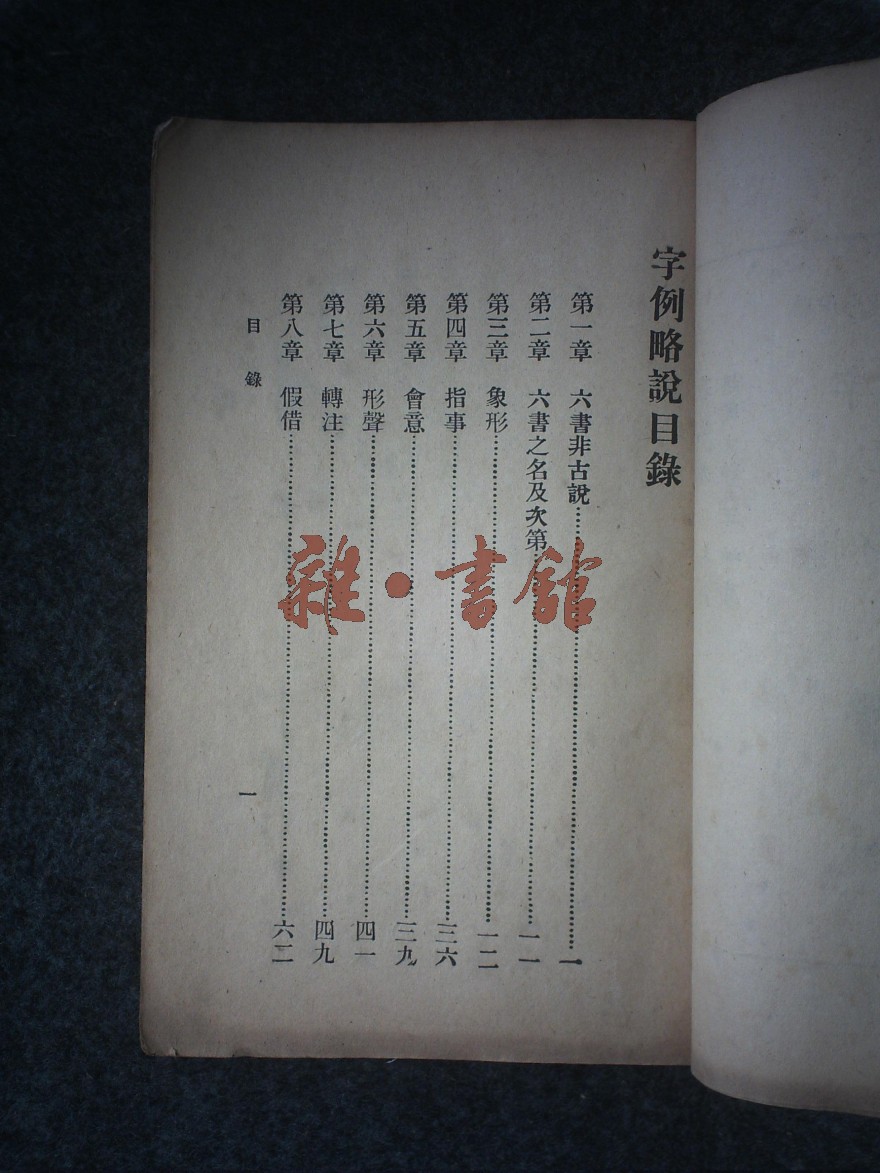 字例略說目錄
第一章 六書非古說……一
第二章 六書之名及次第……一一
第三章 象形……一二
第四章 指事……三六
第五章 會意……三九
第六章 形聲……四一
第七章 轉注……四九
第八章 假借……六二
目錄 一
雜·書館